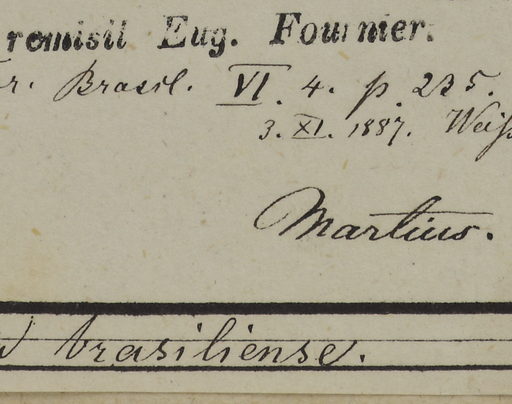 remisit Eug. Fournier.
r. Brasil. VI. 4. p. 235.
3. XI. 1887.
Martius.
brasiliense.